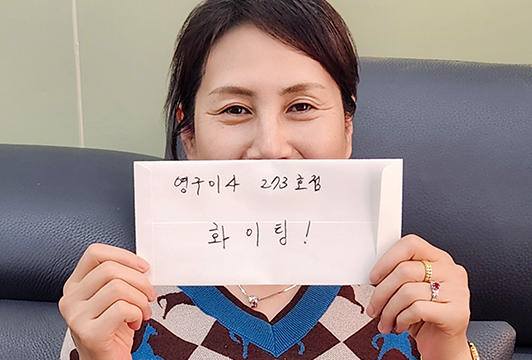 영구이사 273호점
화이팅!